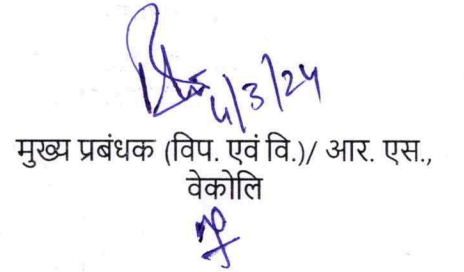 4/3/24
मुख्य प्रबंधक (विप. एवं वि.)/ आर. एस.,
वेकोलि